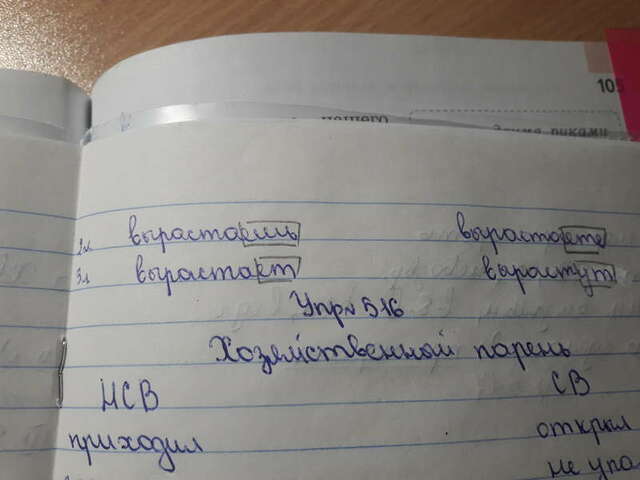 105
нашего
Зчмф пиками
2л вырастаешь вырастаете
3л вырастает вырастут
Упр№516
Хозяйственной парень
НСВ СВ
приходил открыл
не упа